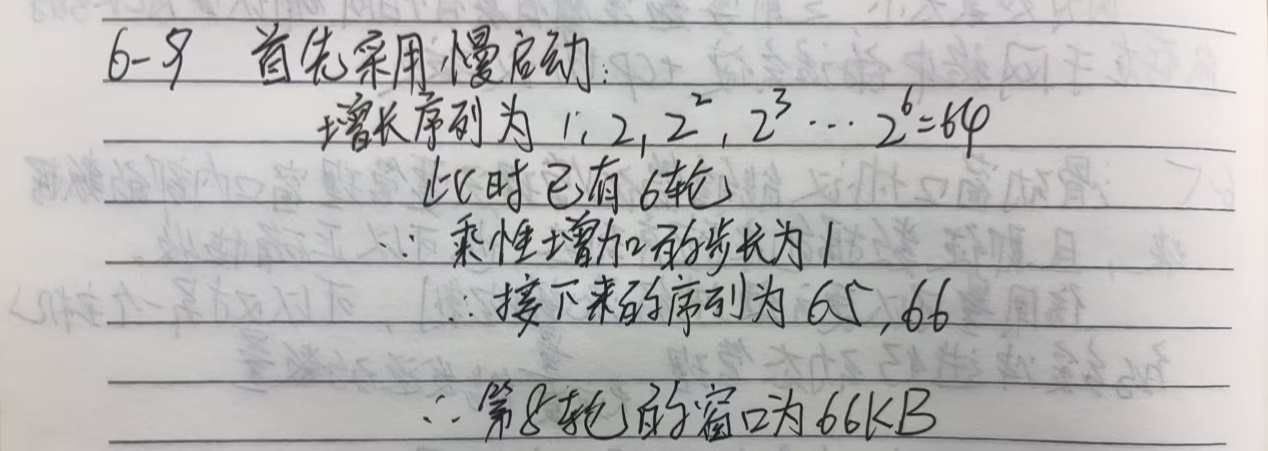 6-9 首先采用慢启动:
增长序列为 1, 2, 2², 2³ ··· 2⁶=64
此时已有6轮
∵ 乘性增加的步长为1
∴ 接下来的序列为 65, 66
∴ 第8轮的窗口为 66KB